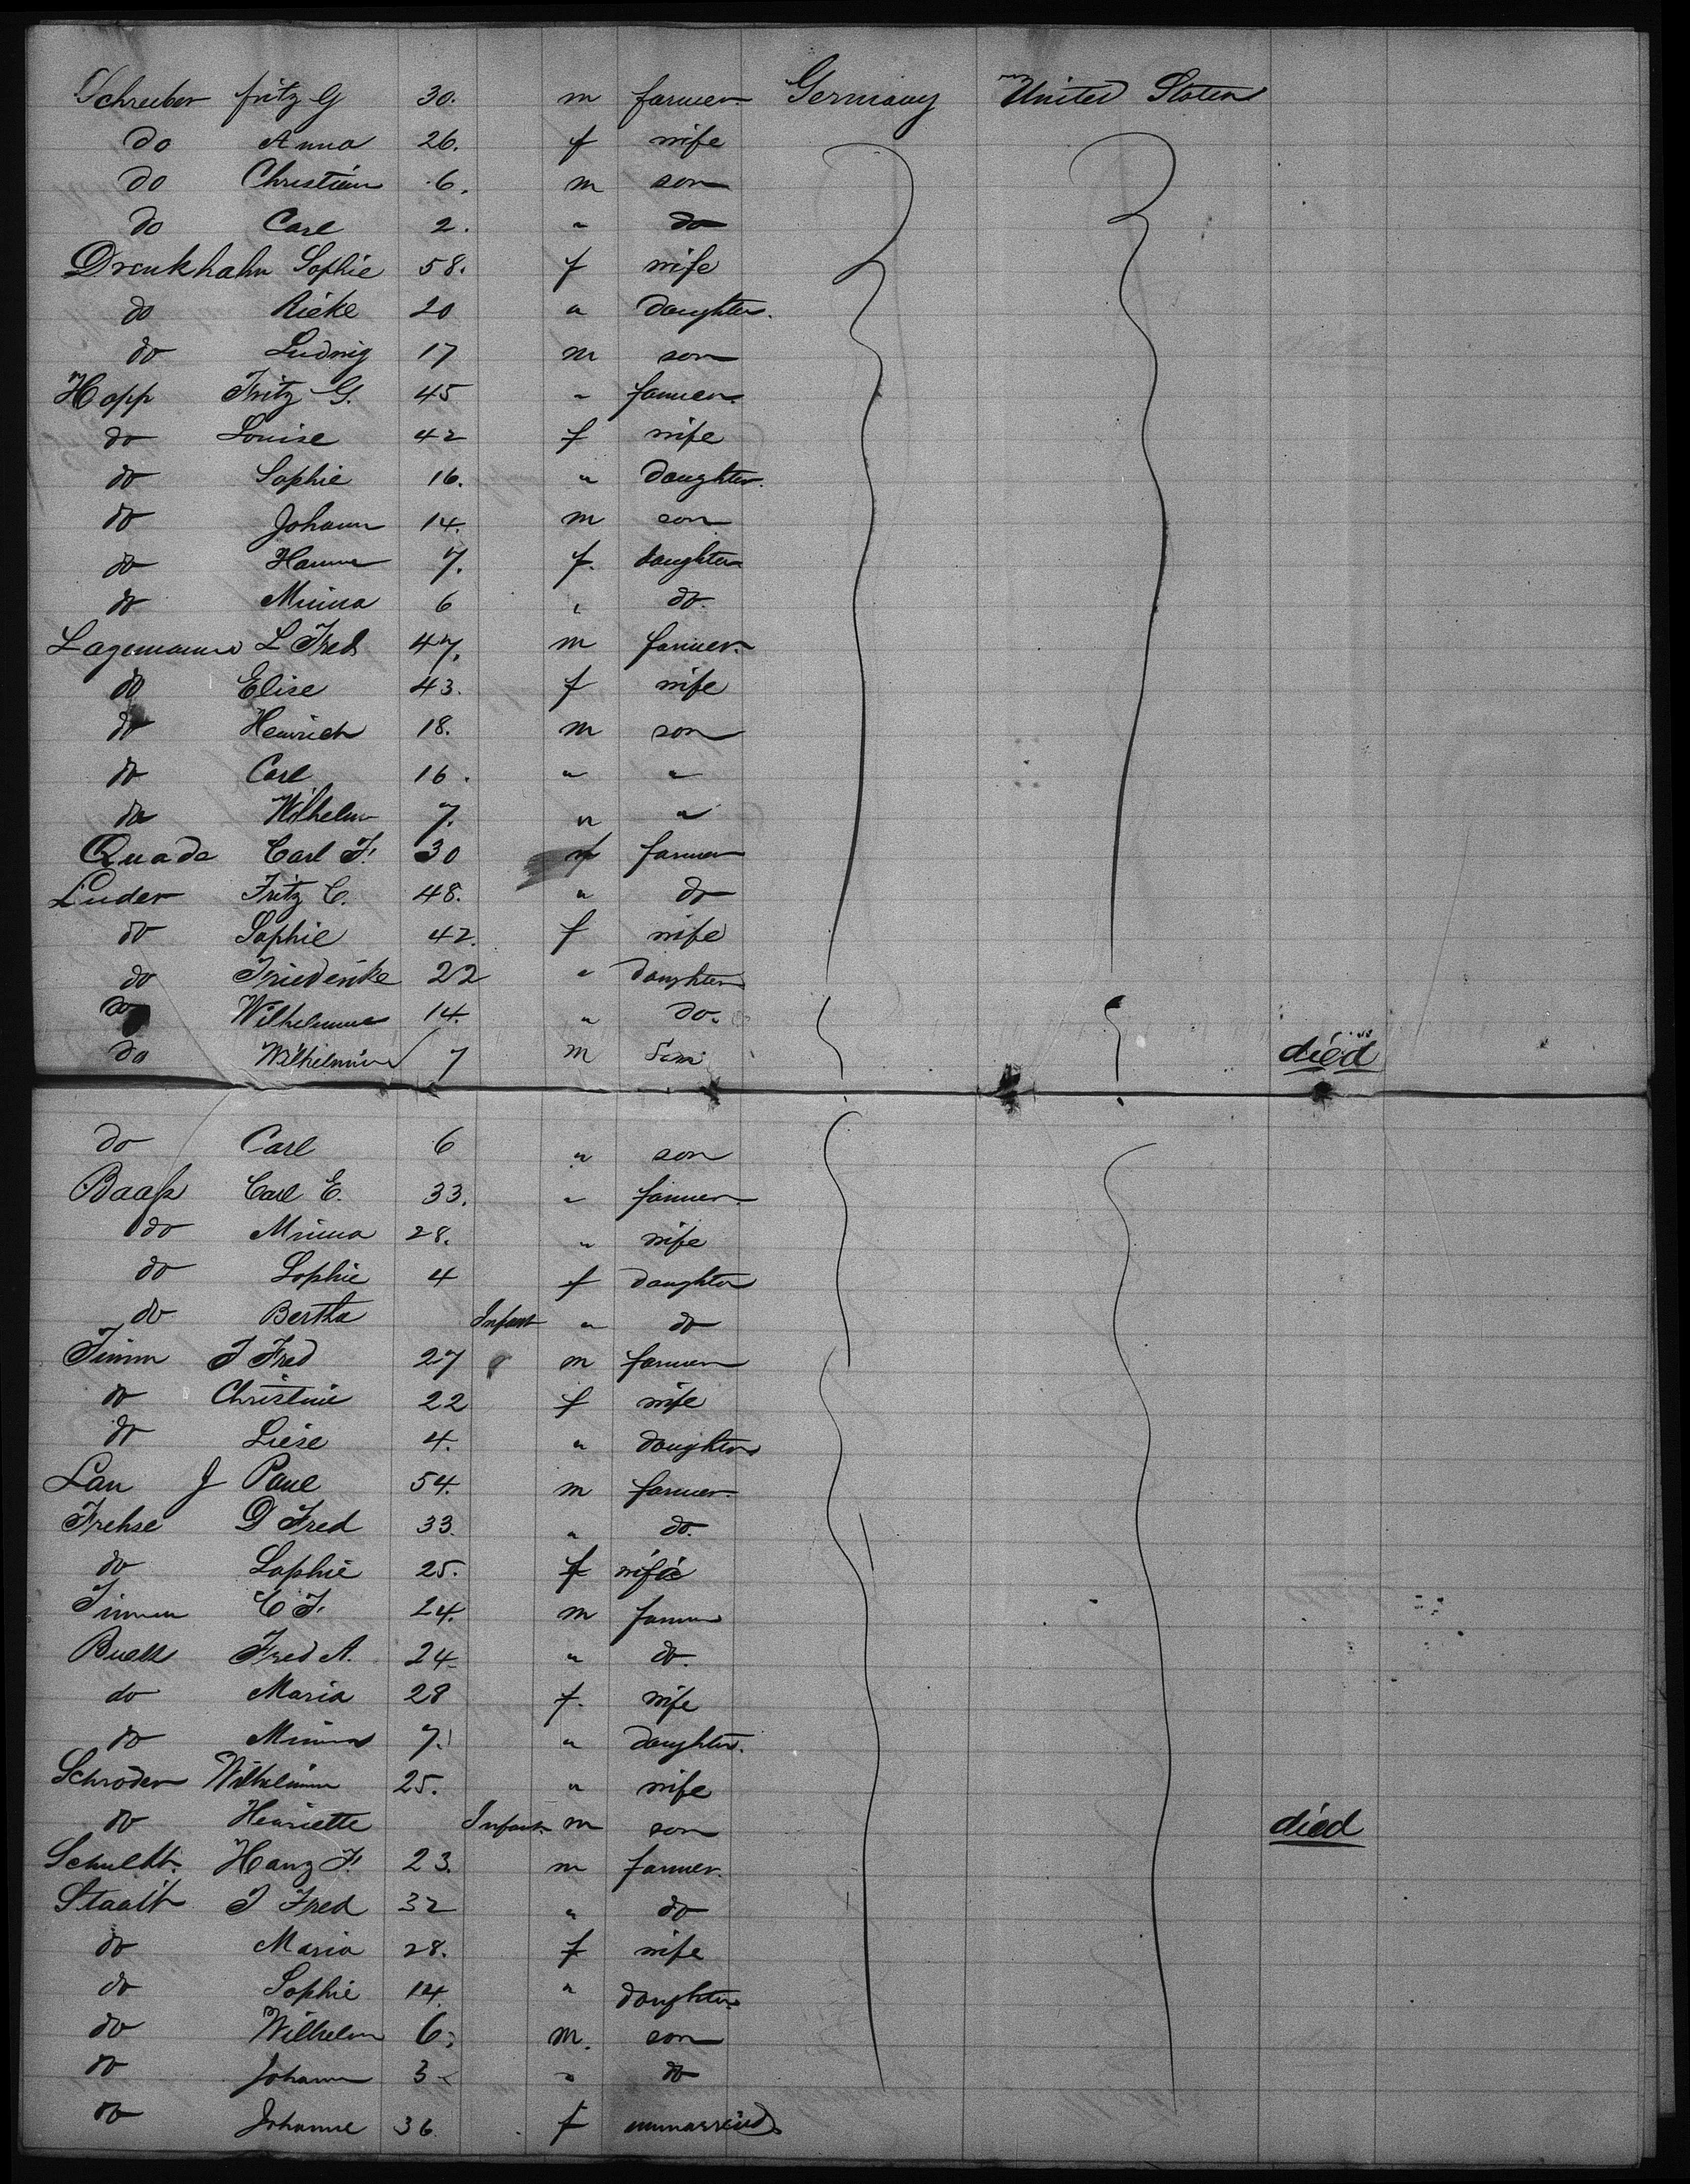 Schreiber fritz G 30. m farmer Germany United States
do Anna 26. f wife
do Christian 6. m son
do Carl 2. " do
Drenkhahn Sophie 58. f wife
do Rieke 20 " daughter.
do Ludwig 17 m son
Hopp Fritz G. 45 " farmer.
do Louise 42 f wife
do Sophie 16. " daughter.
do Johann 14. m son
do Hanna 7. f. daughter
do Minna 6 " do.
Lagemann L Fred 47. m farmer.
do Elise 43. f wife
do Heinrich 18. m son
do Carl 16. " "
do Wilhelm 7. " "
Quade Carl F. 30 farmer
Luder Fritz C. 48. " do
do Sophie 42. f wife
do Friederike 22 " daughter
do Wilhelmine 14. " do.
do Wilhelmine 7 m son died
do Carl 6 " son
Baass Carl E. 33. " farmer.
do Minna 28. " wife
do Sophie 4 f daughter
do Bertha Infant " do
Timm J Fred 27 m farmer
do Christine 22 f wife
do Liese 4. " daughter
Lau J Paul 54. m farmer.
Frehse D Fred 33. " do.
do Sophie 25. f wife
Timm C F. 24. m farmer
Fred A. 24 " do.
do Maria 28 f. wife
do Minna 7. " daughter.
Schroder Wilhelmine 25. " wife
do Henriette Infant m son died
Schuldt. Hanz F. 23. m farmer.
Staalt J Fred 32 " do
do Maria 28. f wife
do Sophie 14. " daughter
do Wilhelm 6. m. son
do Johann 3 " do
do Johanne 36 f unmarried